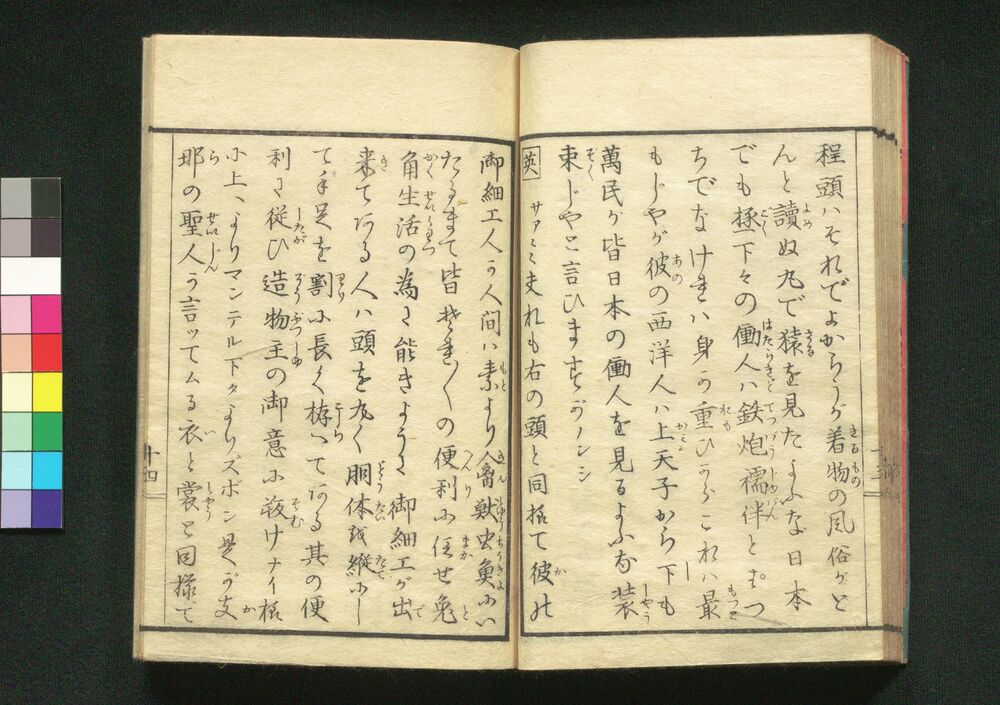 程頭ハそれでよからうが着物の風俗がと
んと讀ぬ丸で猿を見たよふな日本
でも極下々の働人ハ鉄炮襦伴と
ちでなけれハ身が重ひからこれハ最
もじやが彼の西洋人ハ上天子から下も
萬民が皆日本の働人を見るよふな装
束じやと言ひますがノンシ
英 サアヽミ夫れも右の頭と同様で彼の
御細工人が人間ハ素より禽獣虫魚にい
たるまで皆それ〳〵の便利に任せ兎
角生活の為に能きように御細工が出
来てある人ハ頭を丸く胴体を縦にし
て手足を割に長く拵へてある其の便
利に従ひ造物主の御意に背けナイ様
に上ハよりマンテル下タよりズボン是が支
耶の聖人が言ッてムる衣と裳と同様で
十四